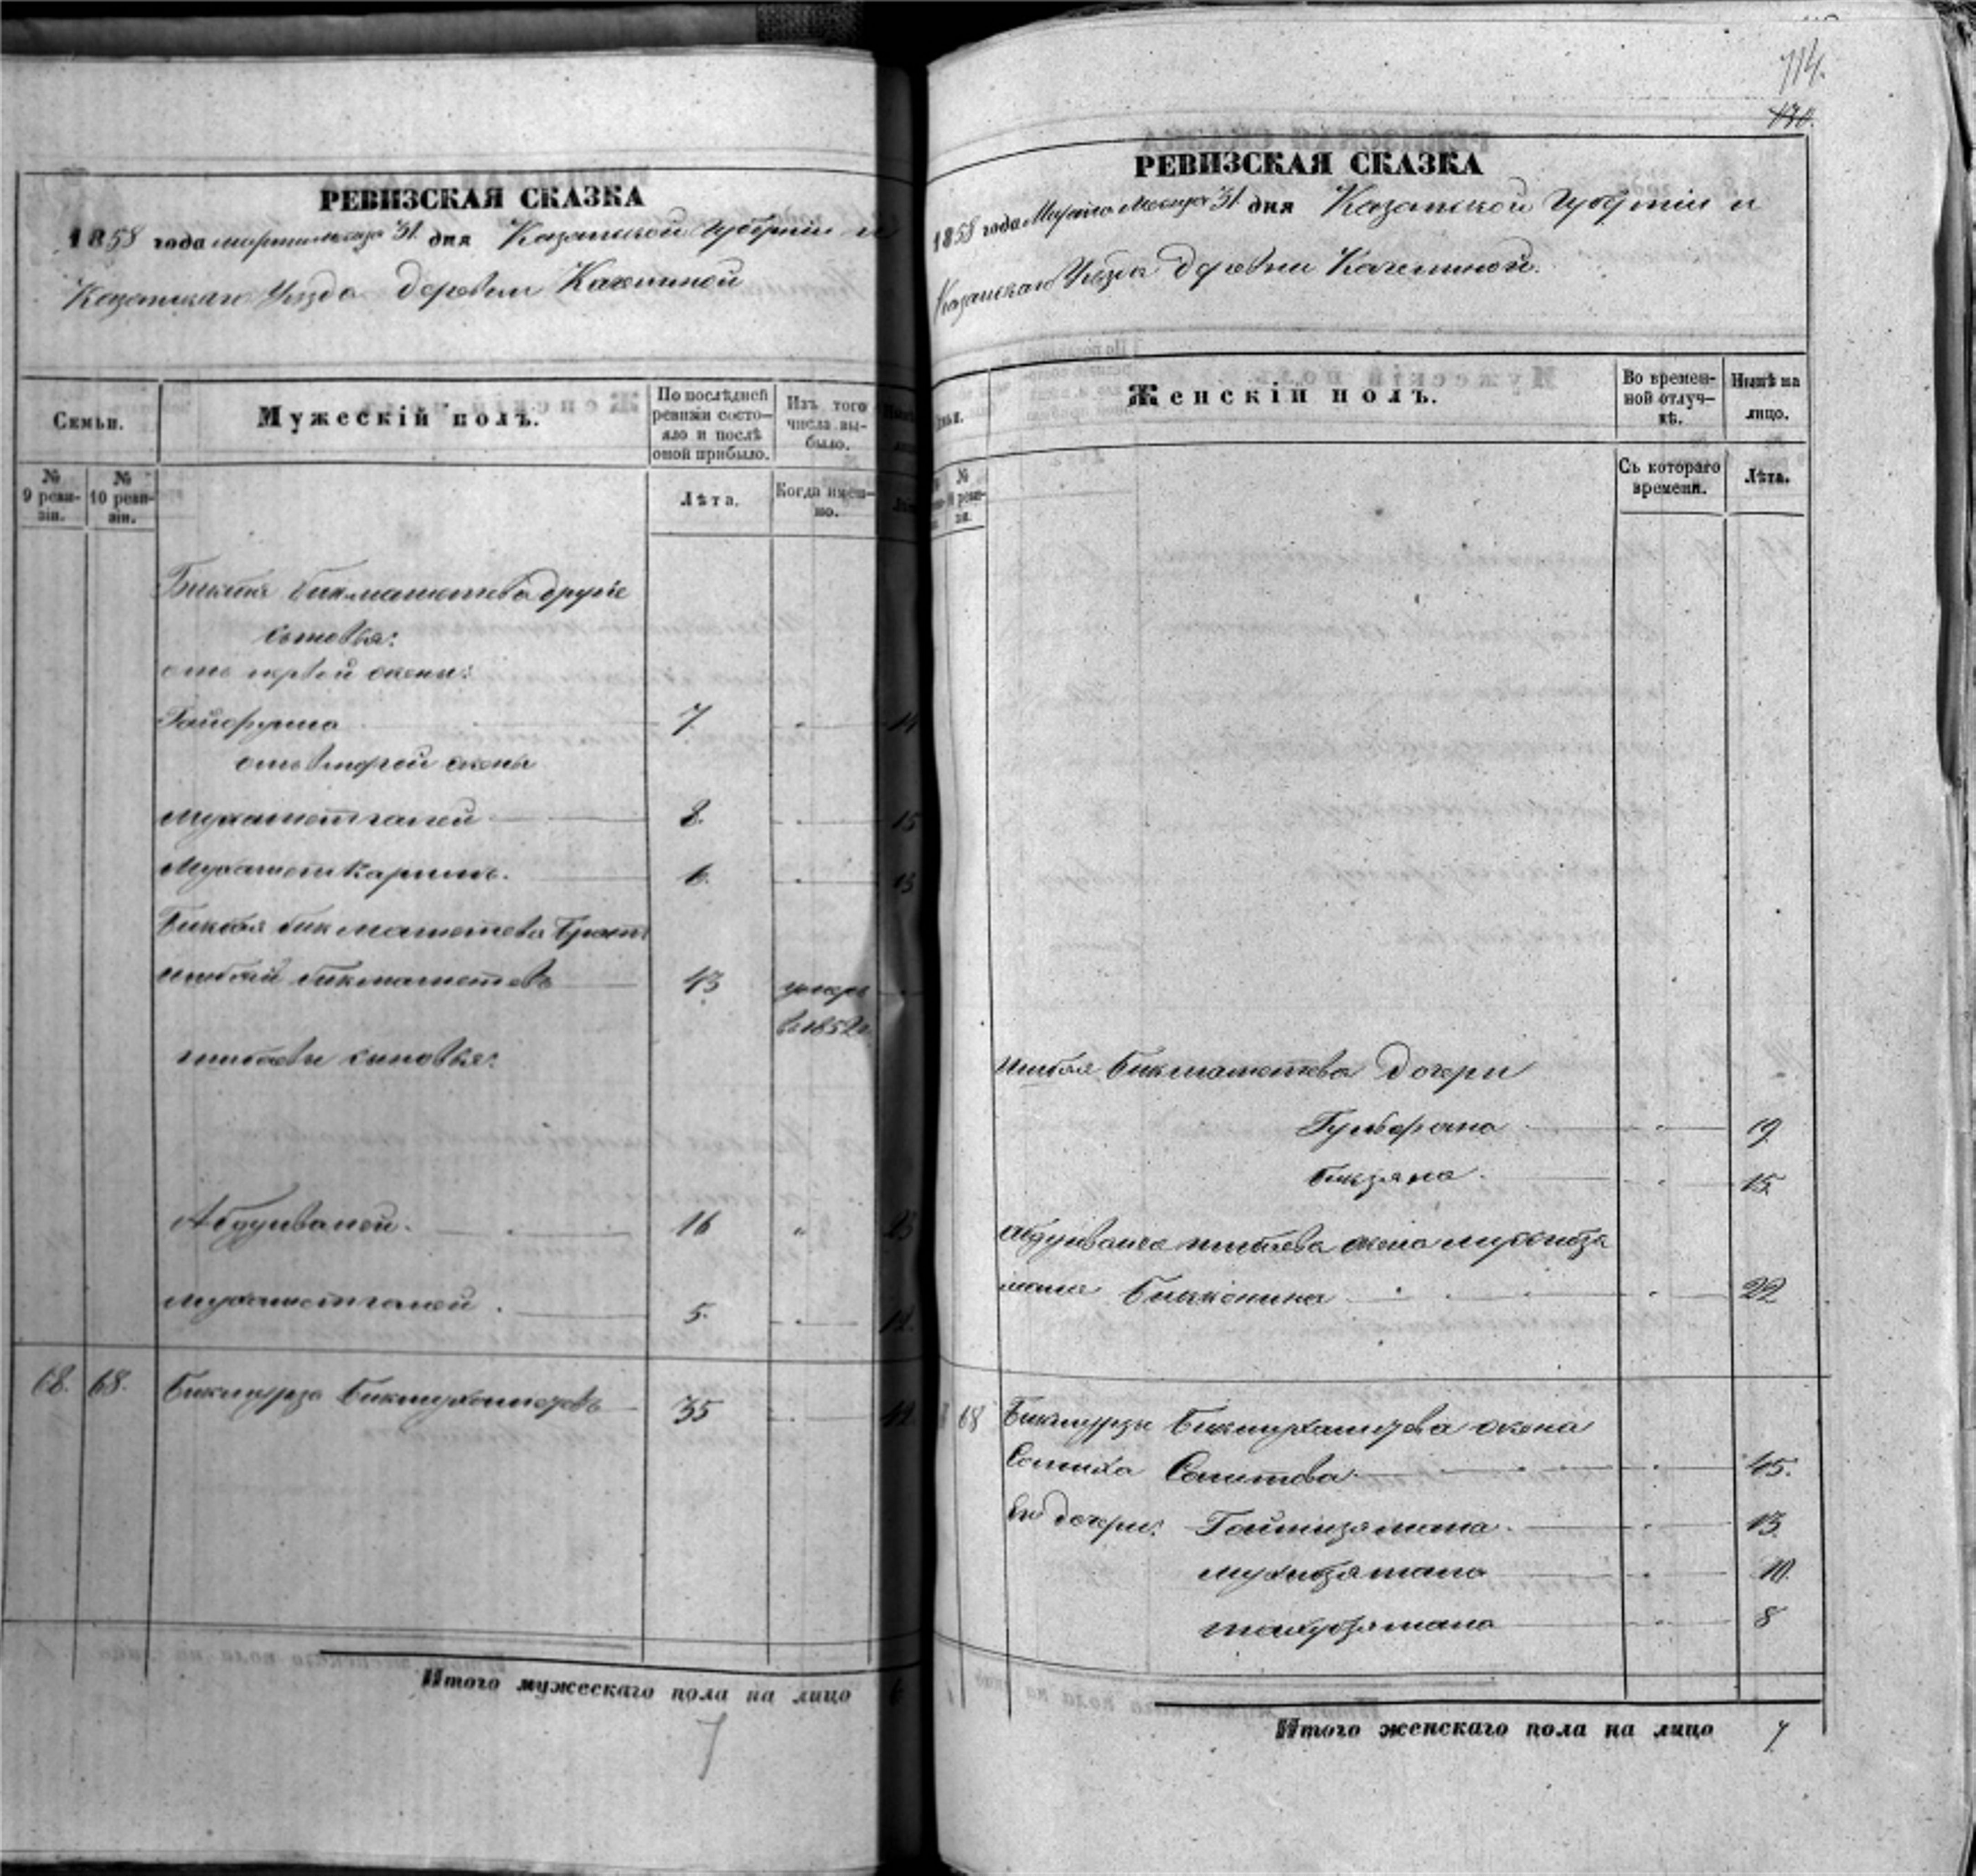 РЕВИЗСКАЯ СКАЗКА
1858 года марта месяца 31 дня Казанской Губернiи и
Казанскаго Уѣзда деревни Качелиной
Семьи.
Мужескiй полъ.
По послѣдней ревизiи состояло и послѣ оной прибыло.
Изъ того числа выбыло.
№ 9 ревизiи.
№ 10 ревизiи.
Лѣта.
Когда именно.
Бикбая Бикмаметева другiе
сыновья:
отъ первой жены:
7 " 14
отъ второй жены
Мухаметгалей 8. " 15
Мухаметкаримъ. 6. " 13
Бикбая Бикмаметева братъ
Ишбай Бикмаметевъ 43 умеръ
въ 1852 г.
Ишбаевы сыновья:
Абдулвалей. 16 " 23
Мухаметгалей. 5. " 12.
68. 68. Бикмурза Бикмухаметовъ 35 " 42.
Итого мужескаго пола на лицо 6
7
714.
130.
РЕВИЗСКАЯ СКАЗКА
1858 года Марта месяца 31 дня Казанской Губернiи и
Казанскаго Уѣзда деревни Качелиной.
Женскiй полъ.
Во временной отлучкѣ.
Нынѣ на лицо.
Съ котораго времени.
Лѣта.
Ишбая Бикмаметева дочери
19
Бикзяна. " 15.
Абдулвалея Ишбаева жена Мухибзя
мала 22
68 Бикмурзы Бикмухаметова жена
Салиха Сагитова 45.
Ея дочери: 13.
Мухибзямала " 10.
8
Итого женскаго пола на лицо 7